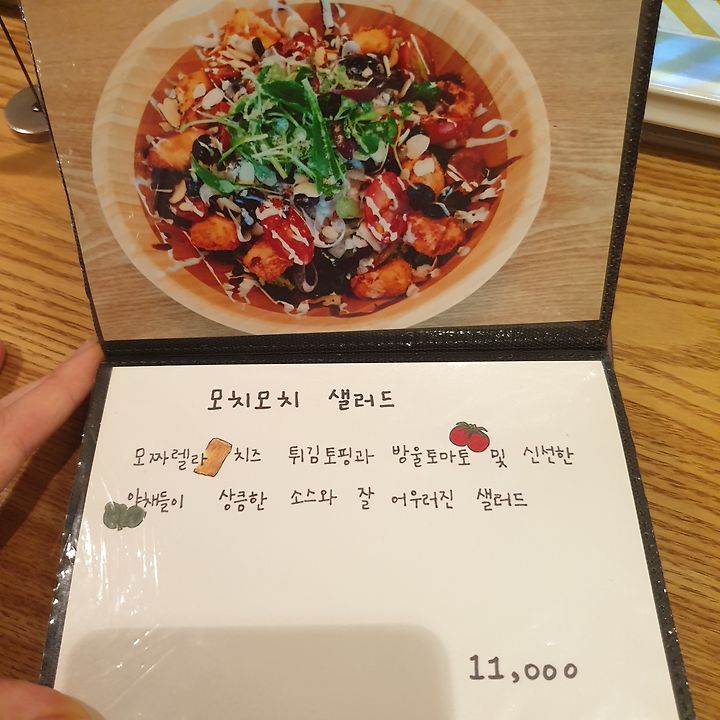 모치모치 샐러드
모짜렐라 치즈 튀김토핑과 방울토마토 및 신선한
야채들이 상큼한 소스와 잘 어우러진 샐러드
11,000